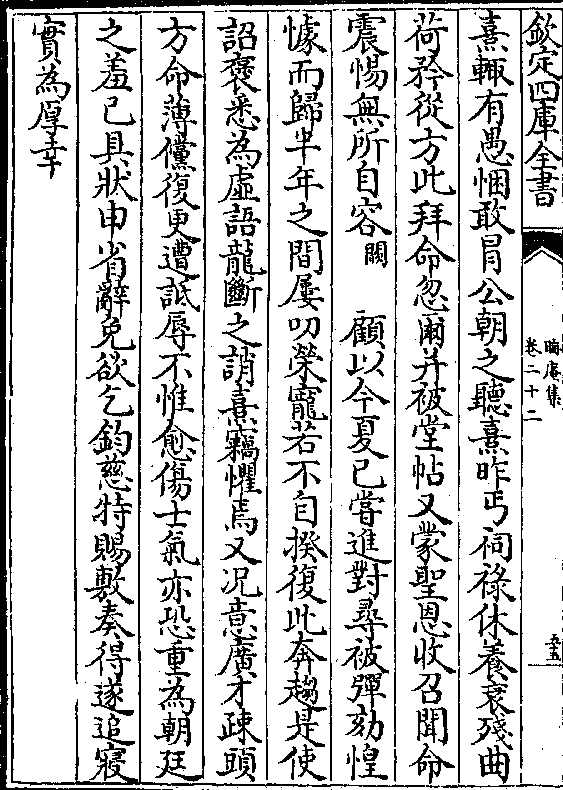 欽定四庫全書
晦庵集
卷二十二
五五
熹輒有愚悃敢冐公朝之聽熹昨丐祠禄休養衰殘曲
荷矜從方此拜命忽爾并被堂帖又蒙聖恩收召聞命
震惕無所自容闕 顧以今夏已嘗進對尋被彈劾惶
懅而歸半年之間屢叨榮寵若不自揆復此奔趨是使
詔褒悉為虚語龍斷之誚熹竊懼焉又况意廣才疎頭
方命薄儻復更遭詆辱不惟愈傷士氣亦恐重為朝廷
之羞已具狀申省辭免欲乞鈞慈特賜敷奏得遂追寢
實為厚幸